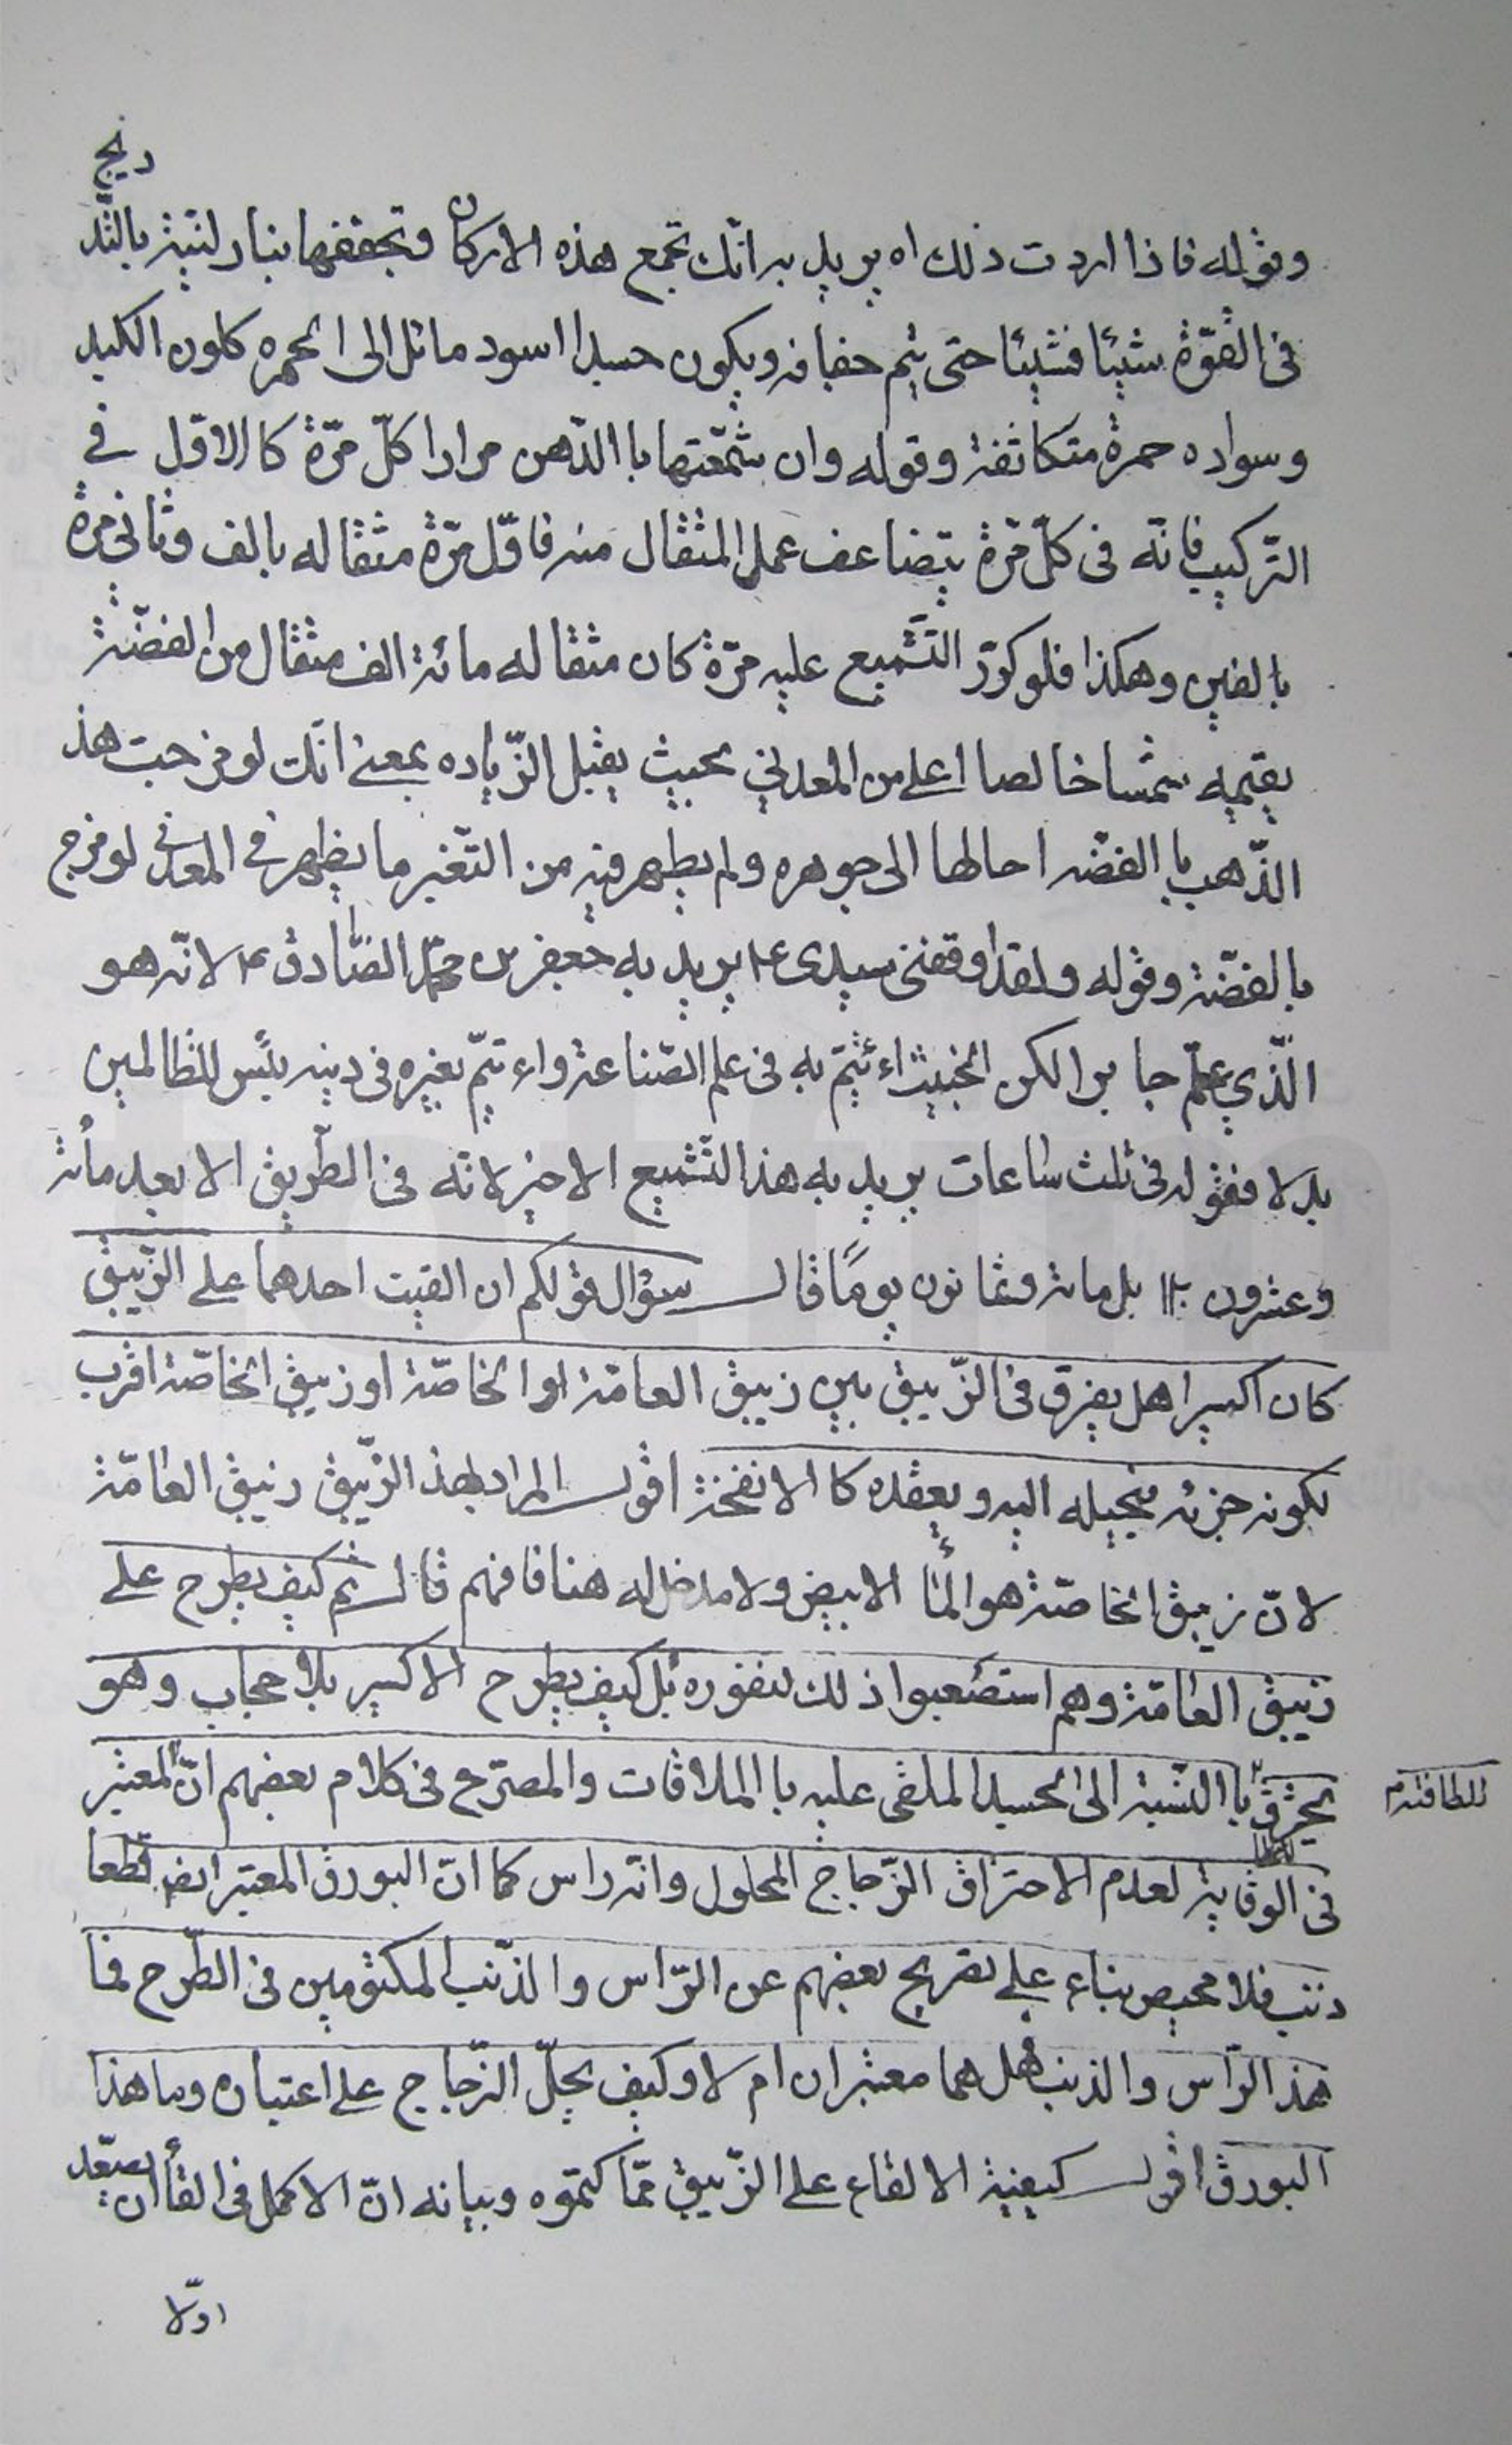 وقوله فاذا اردت ذلك اه يريد به انّك تجمع هذه الاركان وتجففها بنار لينّة بالتّد
ريج
فى القوّة شيئا فشيئا حتى يتم جفافه ويكون جسدا اسود مائل الى الحمره كلون الكبد
وسواده حمرة متكاثفة وقوله وان شمّعتها باالدّهن مرارا كلّ مرّة كاالاوّل فى
التّركيب فانّه فى كلّ مرّة يتضاعف عمل المثقال منه فاوّل مرّة مثقاله بالف وثانى مرة
بالفين وهكذا فلو كرّر التّشميع عليه مرّة كان مثقاله مائة الف مثقال من الفضّة
يقيمه شمسا خالصا اعلى من المعدنى بحيث يقبل الزّياده بمعنى انّك لو مزجت هذ
الذّهب باالفضّه احالها الى جوهره ولم يظهر فيه من التّغير ما يظهر فى المعدنى لو مزج
بالفضّة وقوله ولقد اوقفنى سيدى ع يريد به جعفر بن محمّد الصّادق ع لانّه هو
الّذي علّم جابر الكن الخبيث اءئتمّ به فى علم الصّناعة واءتمّ بغيره فى دينه بئس للظالمين
بدلا فقوله فى ثلث ساعات يريد به هذا التّشميع الاخير لانّه فى الطّريق الابعد مأئة
وعشرون بل مائة وثمانون يومًا قال سؤال قولكم ان القيت احدهما على الزّيبق
كان اكسيرا هل يفرق فى الزّيبق بين زيبق العامّة او الخاصّة او زيبق الخاصّة اقرب
لكونه جزئه فيحيله اليه ويعقده كاالانفخة اقول المراد بهذ الزّيبق زيبق العامّة
لانّ زيبق الخاصّة هو المأ الابيض ولا مدخل له هنا فافهم قال ثم كيف يطرح على
زيبق العامّة وهم استصعبوا ذلك لنفوره بل كيف يطرح الاكسير بلا حجاب وهو
يحترق باالنّسبة الى الجسد الملقى عليه باالملاقات والمصرّح فى كلام بعضهم انّ المعتبر
للطافته م
فى الوقاية لعدم الاحتراق الزّجاج المحلول وانّه راس كما انّ البورق المعتبر ايضا قطعا
ذنب فلا محيص بناء على تصريح بعضهم عن الرّاس والذّنب المكتومين فى الطّرح فما
هذ الرّاس والذنب فهل هما معتبران ام لا وكيف يحلّ الزّجاج على اعتباره وما هذا
البورق اقول كيفية الالقاء على الزّيبق ممّا كتموه وبيانه انّ الاكمل فى القأ ان يصعّد
اوّلا